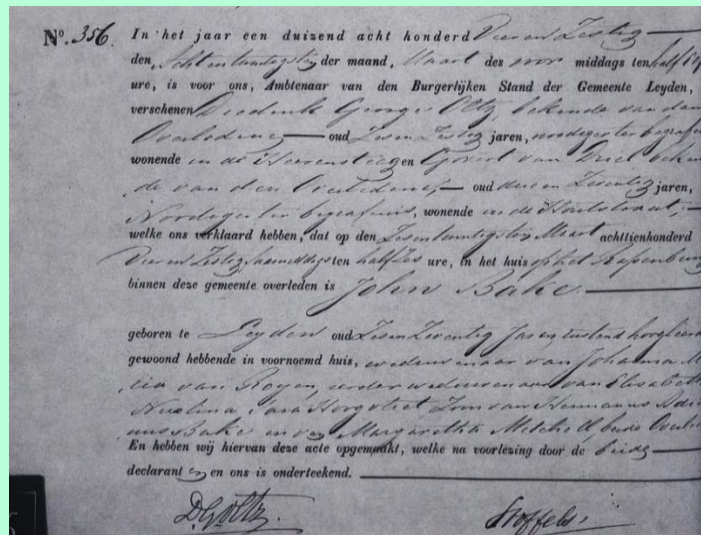 No. 356. In het jaar een duizend acht honderd Vier en Zestig
den Acht en twintigsten der maand, Maart des voor middags ten half elf
ure, is voor ons, Ambtenaar van den Burgerlijken Stand der Gemeente Leyden,
verschenen Diederik George Oltz, bekende van den
Overledene, oud Zes en Zestig jaren, noodiger ter begrafenis
wonende in de Heerensteeg en Govert van Driel beken
de van den Overledene, oud drie en Zeventig jaren,
Noodiger ter begrafenis, wonende in de
welke ons verklaard hebben, dat op den Zes en twintigsten Maart achttienhonderd
Vier en Zestig, namiddags ten half Zes ure, in het huis op het Rapenburg
binnen deze gemeente overleden is John Bake
geboren te Leyden oud Zes en Zeventig Jaren, rustend hoogleeraar
gewoond hebbende in voornoemd huis, weduwenaar van Johanna M
cia van Royen, eerder weduwenaar van Elisabeth
Sara Hoogvliet Zoon van Hermanus Adri
anus Bake en van Margaretha Mitchell, beide Overleden
En hebben wij hiervan deze acte opgemaakt, welke na voorlezing door de beide
declaranten en ons is onderteekend.
D. G. Oltz. Stoffels